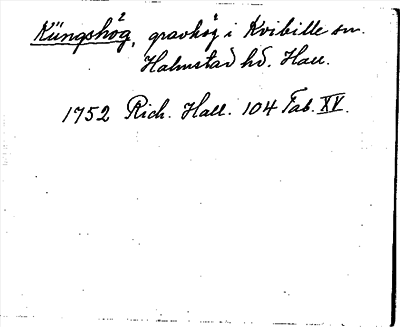 Küngshög, gravhög i Kvibille sn.
Halmstad hd. Hall.
1752 Rich. Hall. 104 Tab. XV.